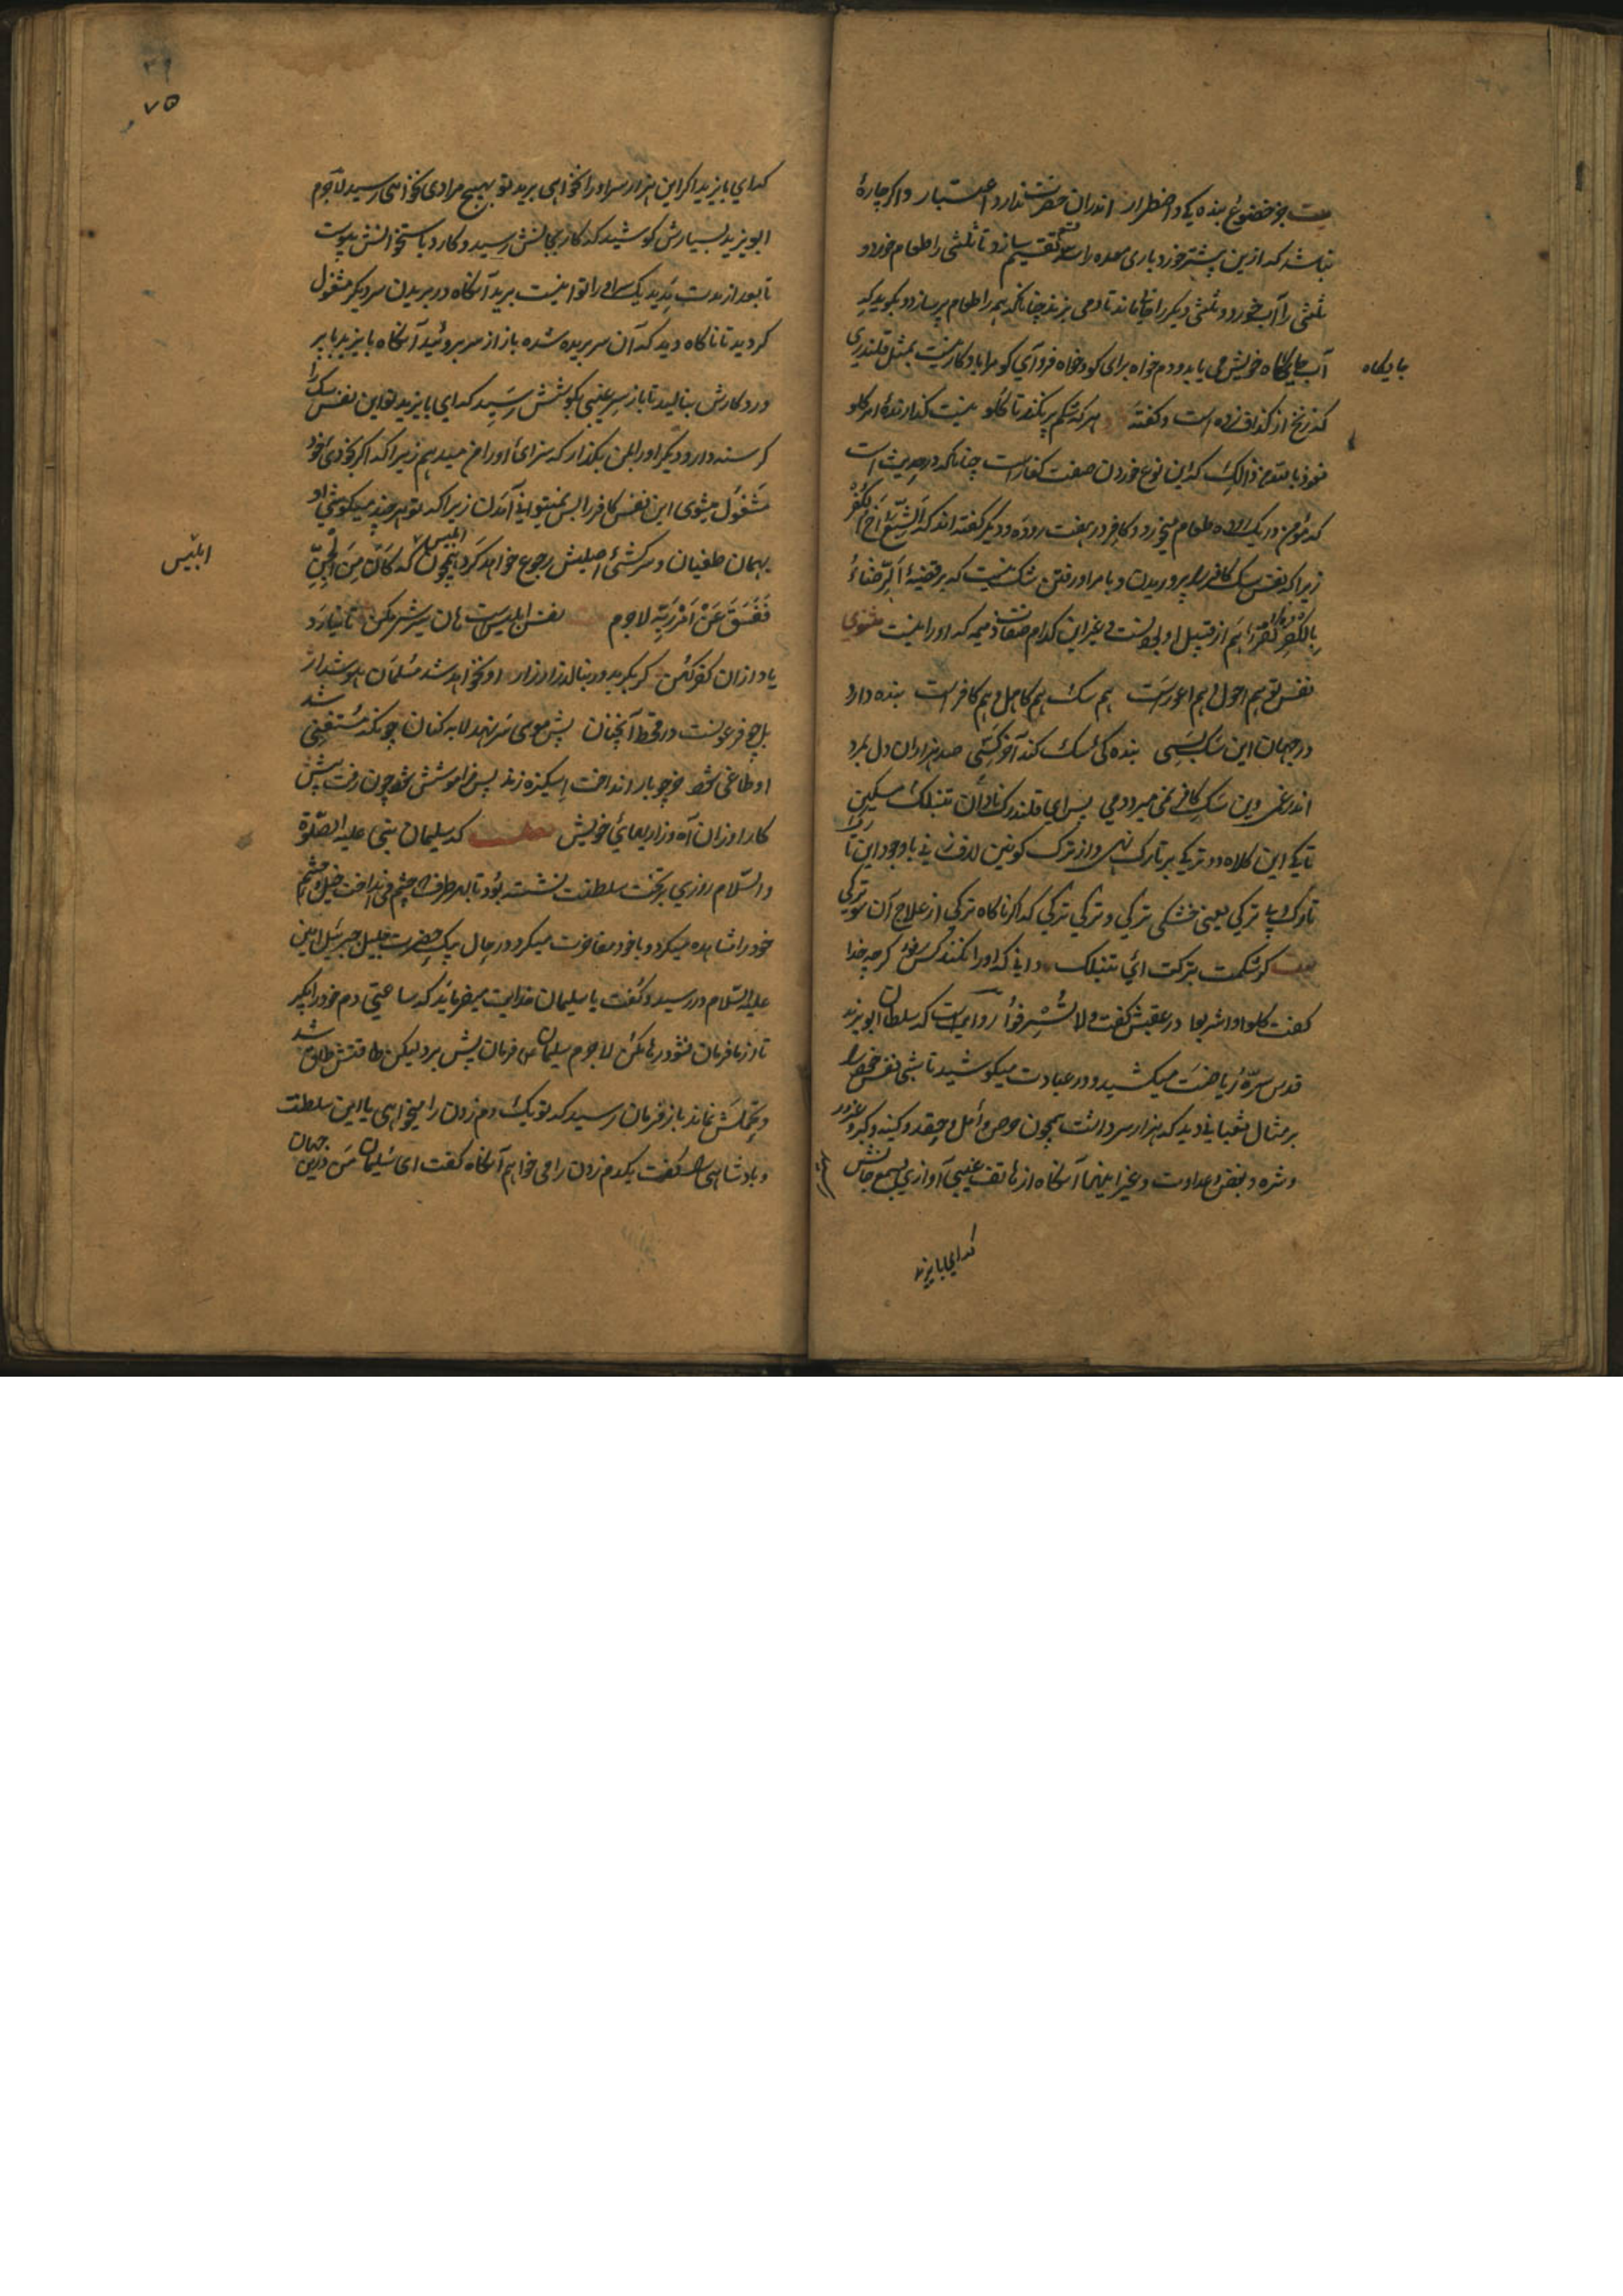 بیت جز خضوع بنده یکی و اضطرار اندران حضرت ندارد اعتبار و اگر چارهٔ
نباشد که ازین پیشتر خورد باری معده را سه تقسیم سازد تا ثلثی را طعام خورد و
ثلثی را آب خورد و ثلثی دیکر را خالی ماند تا دمی بزند چنانکه همه را طعام پر سازد و بگوید که
آب جایگاه خویش می یابد و دم خواه برای کو و خواه فرو آی کو مرا با او کار نیست بمثل قلندری
جایگاه
که زنخ از گذاف زده است و گفته هر که شکم پر نکند تا گلو نیست گذارندهٔ امر کلوا
نعوذ بالله من ذالک که این نوع خوردن صفت کفارست چنانکه در حدیث است
که مؤمن در یک روده طعام میخورد و کافر در هفت روده و دیکر گفته اند که الشبع اخ الکفر
زیرا که نفس سک کافر را پروریدن و بامر او رفتن شک نیست که بر قضیهٔ الرضاء
بالکفر کفر هم از قبیل او نی غیر این کدام صفات ذمیمه که او را نیست مثنوی
نفس تو هم احول و هم اعورست هم سک و هم کاهل و هم کافرست بنده دارد
در جهان این سک بسی بنده کی سک کند آخر کسی صد هزاران دل بمرد
اندر غم وین سک کافر نمی میرد دمی پس ای قلندرک نادان تنبلک مسکین
تا کی این کلاه دو ترکی بر تارک نهی و از ترک کونین لاف زنی با وجود این
ترکی یعنی خشکی ترکی و تری ترکی که اگر ناگاه ترکی از علاج آن سو ترکی
بیت گر شکمت بترکد ای تنبلک دانه که او را نکند کس رفو گر چه خدا
گفت کلوا واشربوا در عقبش گفت ولا تسرفوا روایت است که سلطان ابو یزید
قدس سره ریاضت میکشید و در عبادت میکوشید تا شبی نفس خود را
بر مثال ثعبانی دید که هزار سر داشت همچون حرص و امل و حقد و کینه و کبر و غرور
و شره و بغض و عداوت و غیر اینها آنگاه از هاتف غیبی آوازی بسمع جانش
رسید
که ای بایزید
۷۵
که ای بایزید اگر این هزار سر او را نخواهی برید تو بهیچ مرادی نخواهی رسید لاجرم
ابو یزید بسیارش کوشید که کار بجانش رسید و کارد باستخوانش پیوست
تا بعد از مدت مدید یک سر او را توانست برید آنگاه در بریدن سر دیکر مشغول
گردید تا ناگاه دید که آن سر بریده شده باز از سر بروئید آنگاه بایزید با پر
وردگارش بنالید تا باز سر غیبی بگوشش رسید که ای بایزید تو این نفس سک را
گرسنه دار و دیکر او را بمن بگذار که سزای او را من میدهم زیرا که اگر بخودی خود
مشغول میشوی این نفس کافر را بس نمیتوانی آمدن زیرا که تو هر چند میکوشی او
بهمان طغیان و سرکشی اصلیش رجوع خواهد کرد همچون ابلیس که کان من الجن
ابلیس
ففسق عن امر ربه لاجرم نفس ابلیس است هان سیرش مکن تا نیارد
یاد ازان کفر کهن گر بگرید ور بنالد زار زار او نخواهد شد مسلمان هوش دار
بل چو فرعونست در قحط آنچنان پیش موسی سر نهد لابه کنان چونکه مستغنی شد
او طاغی شود خر چو بار انداخت اسکیزه زند پس فراموشش شود چون رفت پیش
کار او زان آه و زاریهای خویش که سلیمان نبی علیه الصلوة
والسلام روزی بر تخت سلطنت نشسته بود تا بهر طرف که چشم می انداخت خیل و حشم
خود را مشاهده میکرد و با خود مفاخرت میکرد در حال پیک حضرت جلیل جبرئیل امین
علیه السلام در رسید و گفت یا سلیمان خدایت میفرماید که ساعتی دم خود را بگیر
تا از ما فرمان نشود رها مکن لاجرم سلیمان فرمان پیش برد لیکن طاقتش طاق شد
و تحملش نماند باز فرمان رسید که تو یک دم زدن را میخواهی یا این سلطنت
و پادشاهی را گفت یکدم زدن را می خواهم آنگاه گفت ای سلیمان من درین جهان